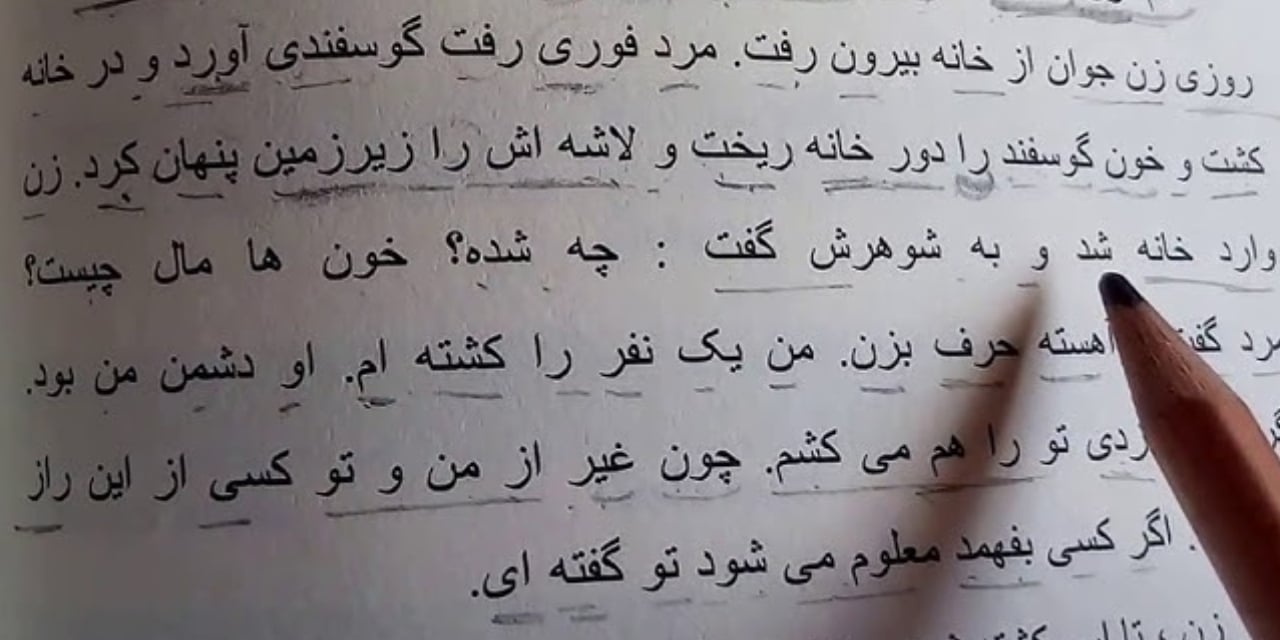 روزی زن جوان از خانه بیرون رفت. مرد فوری رفت گوسفندی آورد و در خانه
کشت و خون گوسفند را دور خانه ریخت و لاشه اش را زیرزمین پنهان کرد. زن
وارد خانه شد و به شوهرش گفت : چه شده؟ خون ها مال چیست؟
مرد آهسته حرف بزن. من یک نفر را کشته ام. او دشمن من بود.
تو را هم می کشم. چون غیر از من و تو کسی از این راز
. اگر کسی بفهمد معلوم می شود تو گفته ای.